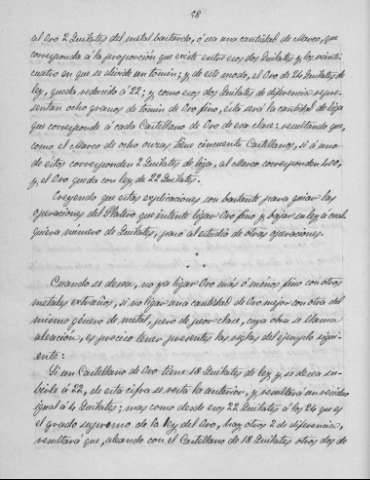 98
al Oro 2 Quilates del metal bastardo, ó sea una cantidad de Marco, que
corresponda á la proporción que existe entre esos dos Quilates y los veinte
cuatro en que se divide un tomin; y de este modo, el Oro de 24 Quilates de
ley, queda reducido á 22; y como esos dos Quilates de diferencia repre-
sentan ocho granos de tomin de Oro fino, esta será la cantidad de liga
que corresponde á cada Castellano de Oro de esa clase: resultando que,
como el Marco de ocho onzas tiene cincuenta Castellanos, si á uno
de estos corresponden 2 Quilates de liga, al Marco corresponden 100,
y el Oro queda con ley de 22 Quilates.
Creyendo que estas explicaciones son bastante para guiar las
operaciones del Platero que intente ligar Oro fino y bajar su ley á cual-
quiera número de Quilates, paso al estudio de otras operaciones.
Cuando se desea, no ya ligar Oro más ó menos fino con otros
metales extraños, si no ligar una cantidad de Oro mejor con otra del
mismo género de metal, pero de peor clase, cuya obra se llama
aleación, es preciso tener presentes las reglas del ejemplo sigui-
ente:
Si un Castellano de Oro tiene 18 Quilates de ley y se desea su-
birle á 22, de esta cifra se resta la anterior, y resultará un residuo
igual á 4 Quilates; mas como desde esos 22 Quilates á los 24 que es
el grado supremo de la ley del Oro, hay otros 2 de diferencia,
resultará que, aleando con el Castellano de 18 Quilates otros dos de